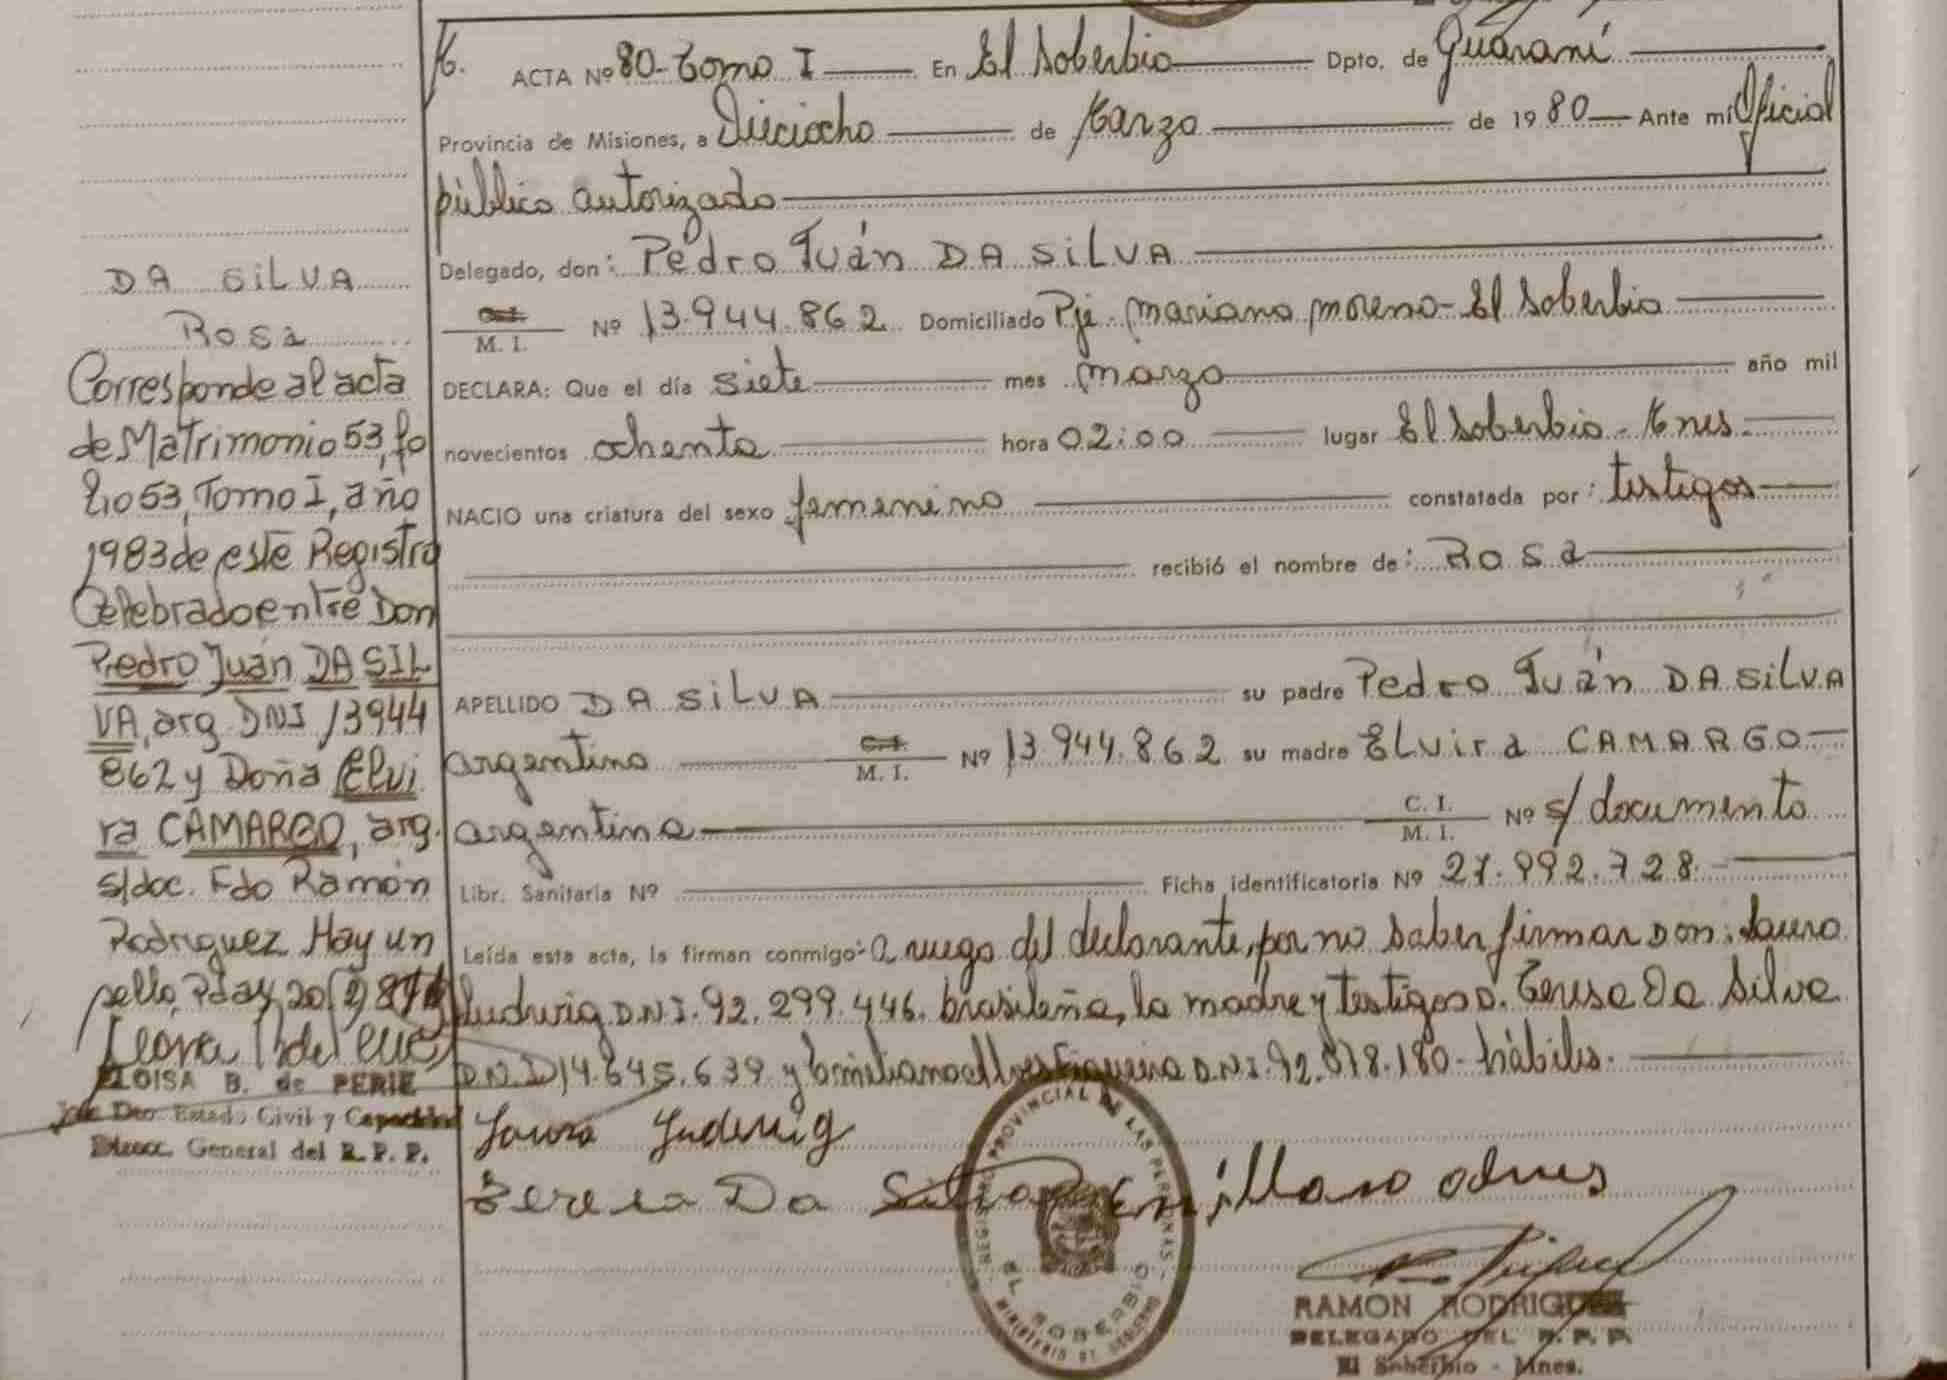 DA SILVA
Rosa
Corresponde al acta
de Matrimonio 53, fo
lio 53, Tomo I, año
1983 de este Registro
Celebrado entre Don
Pedro Juán DA SIL
VA, arg. DNI 13944
862 y Doña Elvi
ra CAMARGO, arg.
s/doc. Fdo Ramón
Rodriguez Hay un
sello, Pdas, 20
ELOISA B. de PERIE
Jefe Dto. Estado Civil y Capacidad
Direcc. General del R. P. P.
ACTA Nº 80- Tomo I En El Soberbio Dpto. de Guaraní
Provincia de Misiones, a Dieciocho de Marzo de 1980 Ante mi Oficial
público autorizado
Delegado, don: Pedro Juán DA SILVA
M. I. Nº 13.944.862 Domiciliado Pje. Mariano Moreno- El Soberbio
DECLARA: Que el día siete mes marzo año mil
novecientos ochenta hora 02:00 lugar El Soberbio - Mnes.
NACIO una criatura del sexo femenino constatada por: testigos
recibió el nombre de: Rosa
APELLIDO DA SILVA su padre Pedro Juán DA SILVA
argentino M. I. Nº 13.944.862 su madre Elvira CAMARGO
argentina C. I. M. I. Nº s/documento
Libr. Sanitaria Nº Ficha identificatoria Nº 27.992.728.
Leída esta acta, la firman conmigo: a ruego del declarante, por no saber firmar Don: Lauro
Ludwig D.N.I. 92.299.446. brasileña, la madre y testigos D. Teresa Da Silva
D.N.I 14.645.639 y Emiliano D.N.I. 92.018.180- hábiles.
Lauro Ludwig
Teresa Da Silva
REGISTRO PROVINCIAL DE LAS PERSONAS
EL SOBERBIO
MINISTERIO DE GOBIERNO
RAMON RODRIGUEZ
DELEGADO DEL R. P. P.
El Soberbio - Mnes.